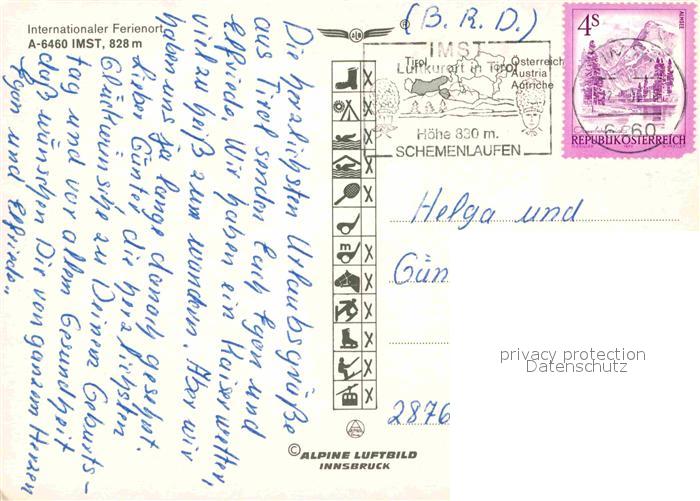 Internationaler Ferienort
A-6460 IMST, 828 m
Die herzlichsten Urlaubsgrüße
aus Tirol senden Euch Egon und
Elfriede. Wir haben ein Kaiserwetter,
viel zu heiß zum wandern. Aber wir
haben uns ja lange danach gesehnt.
Lieber Günter die herzlichsten
Glückwünsche zu Deinem Geburts-
tag und vor allem Gesundheit
daß wünschen Dir von ganzem Herzen
Egon und Elfriede..
®
m
© ALPINE LUFTBILD
INNSBRUCK
(B.R.D.)
IMST
Luftkurort in Tirol
Höhe 830 m.
SCHEMENLAUFEN
Tirol
Österreich
Austria
Autriche
6460
4S
ALMSEE
REPUBLIK ÖSTERREICH
Helga und
Gün
2876
privacy protection
Datenschutz